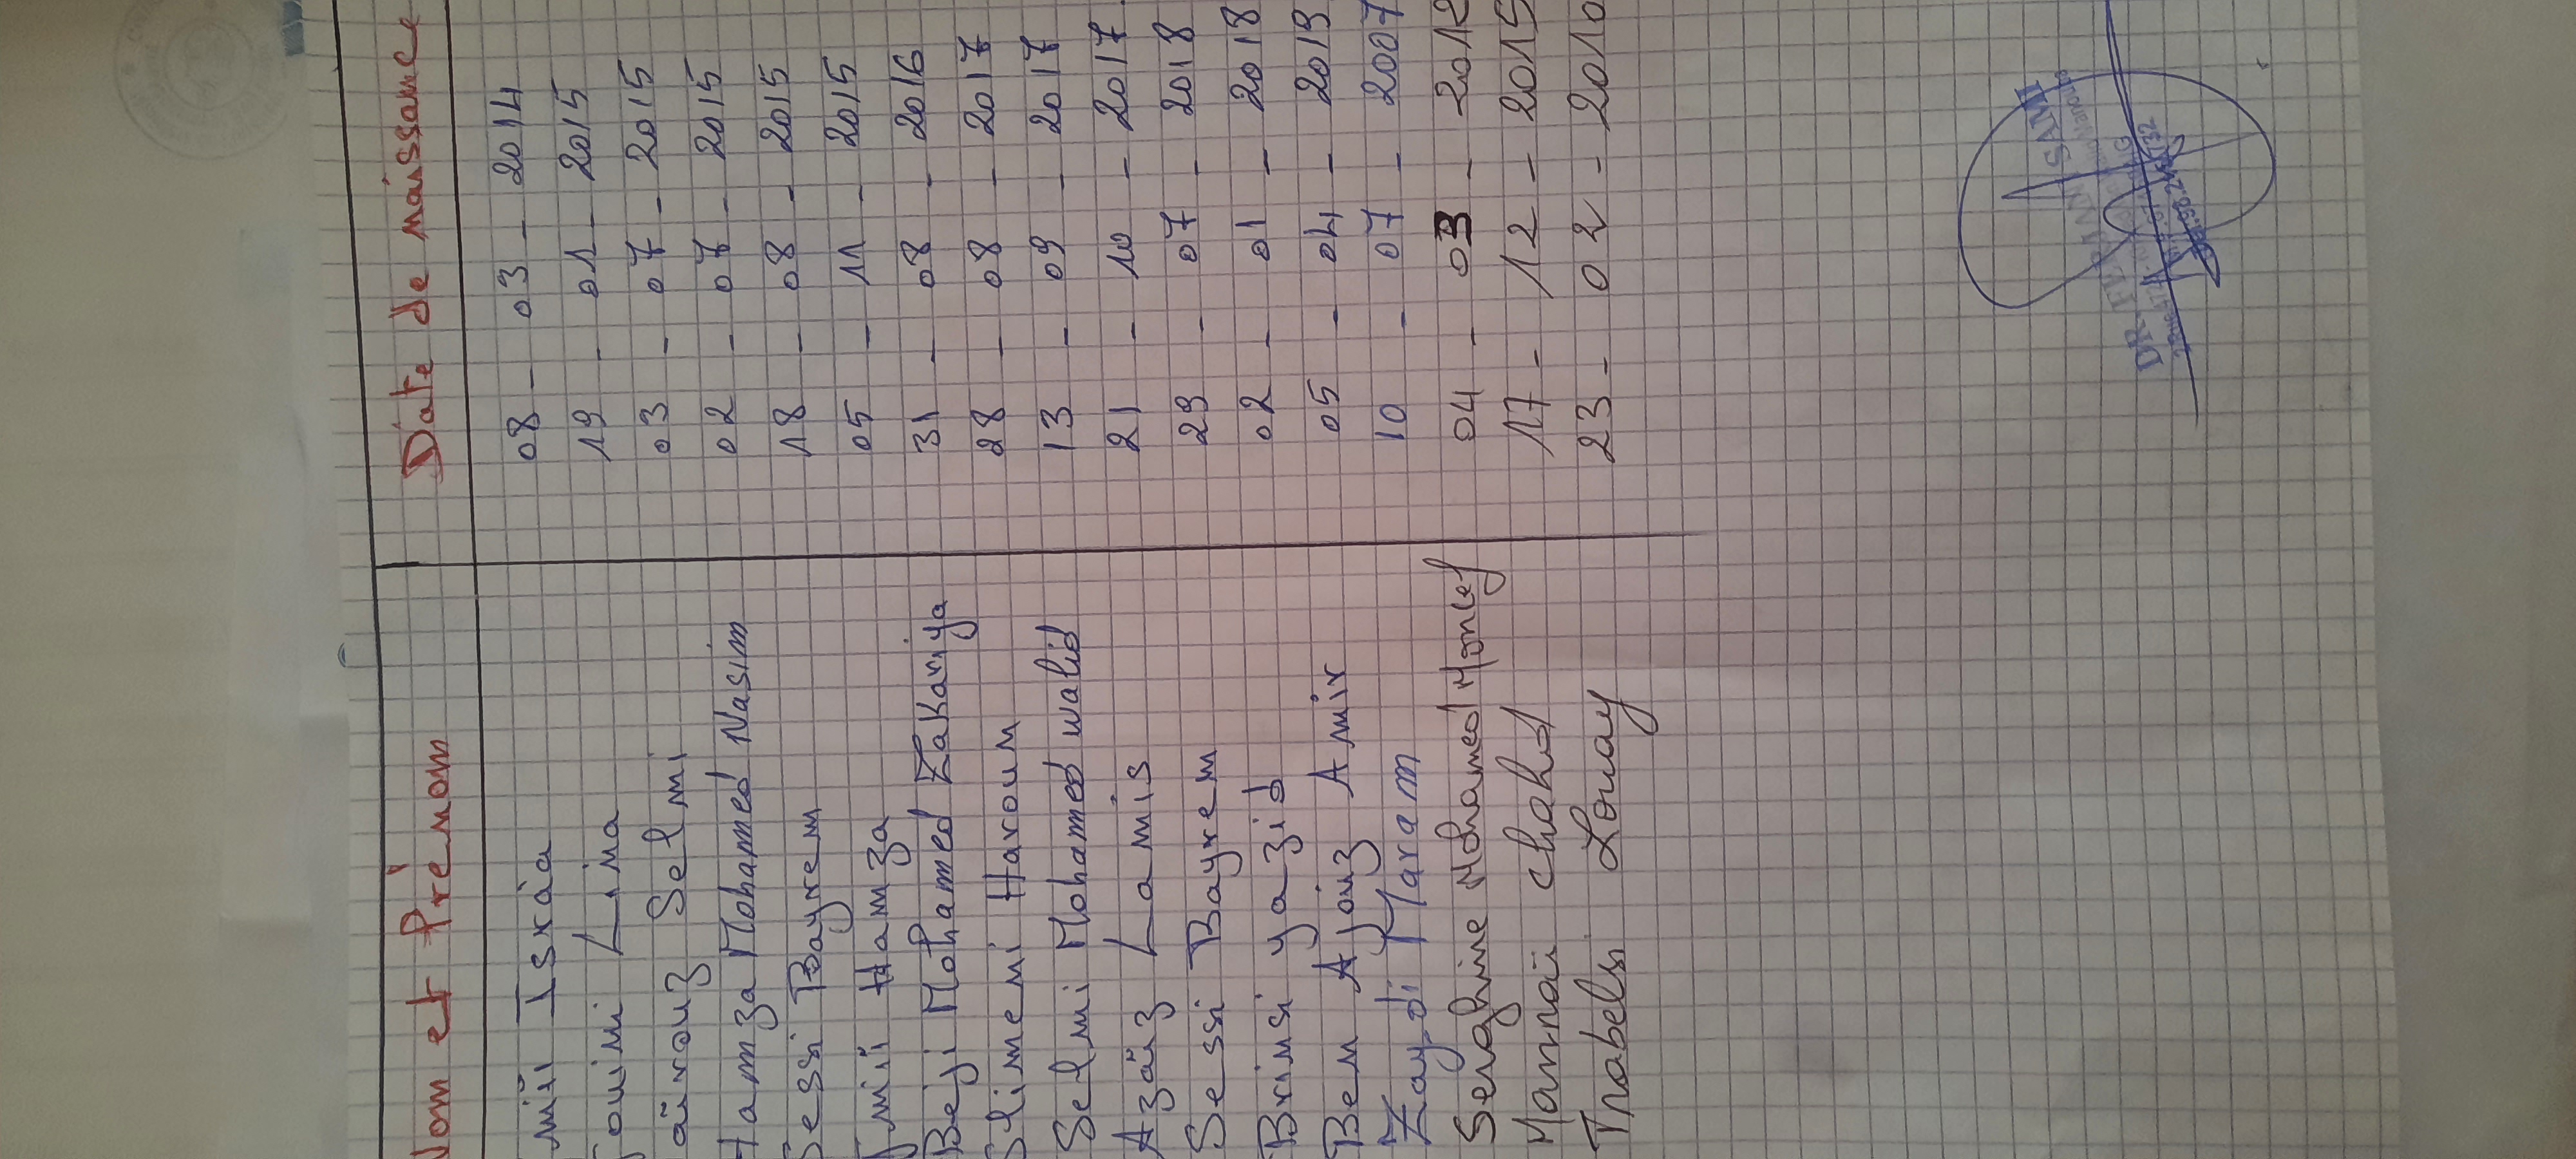 Nom et Prénom Date de naissance
Isràa 08 - 03 - 2014
Lina 19 - 01 - 2015
Selmi 03 - 07 - 2015
Hamza Mohammed Nasim 02 - 07 - 2015
Sessi Bayrem 18 - 08 - 2015
Hamza 05 - 11 - 2015
Beji Mohamed Zakariya 31 - 08 - 2016
Slimeni Haroun 28 - 08 - 2017
Selmi Mohamed walid 13 - 09 - 2017
Azäiz Lamis 21 - 10 - 2017
Sessi Bayrem 29 - 07 - 2018
Brinsi yazid 02 - 01 - 2018
Ben Ajoiuz Amir 05 - 04 - 2019
Zaydi Maram 10 - 07 - 2007
Seraghine Mohamed Moncef 04 - 03 - 2012
Mannai chahd 17 - 12 - 2015
Trabelsi Louay 23 - 02 - 2010
SAMI
DR.